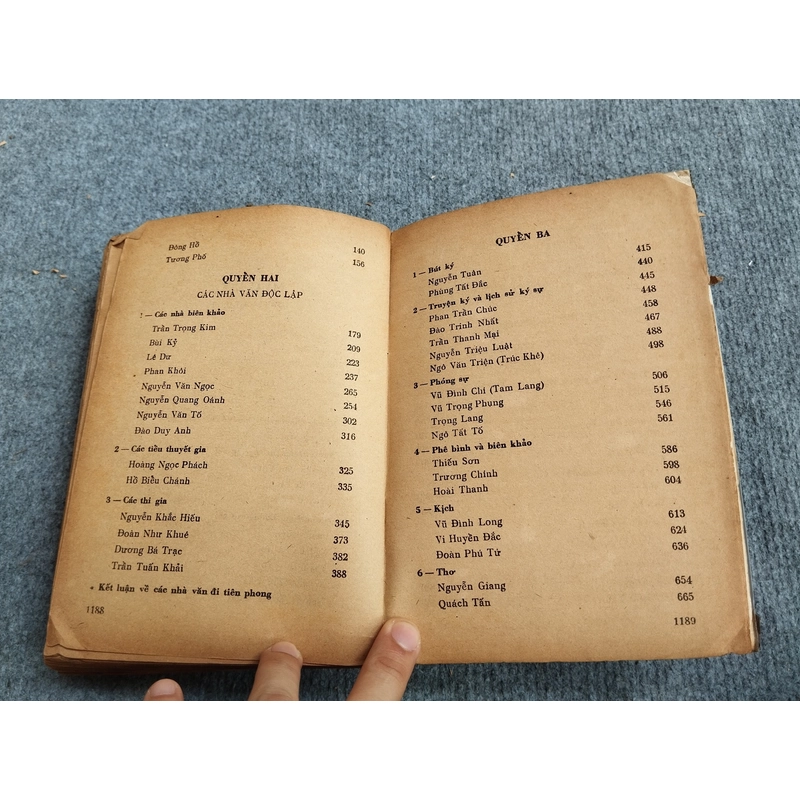 Đông Hồ 140
Tương Phố 156
QUYỂN HAI
CÁC NHÀ VĂN ĐỘC LẬP
1 — Các nhà biên khảo
Trần Trọng Kim 179
Bùi Kỷ 209
Lê Dư 223
Phan Khôi 237
Nguyễn Văn Ngọc 265
Nguyễn Quang Oánh 254
Nguyễn Văn Tố 302
Đào Duy Anh 316
2 — Các tiểu thuyết gia
Hoàng Ngọc Phách 325
Hồ Biểu Chánh 335
3 — Các thi gia
Nguyễn Khắc Hiếu 345
Đoàn Như Khuê 373
Dương Bá Trạc 382
Trần Tuấn Khải 388
* Kết luận về các nhà văn đi tiên phong
1188
QUYỂN BA
1 — Bút ký 415
Nguyễn Tuân 440
Phùng Tất Đắc 445
2 — Truyện ký và lịch sử ký sự 448
Phan Trần Chúc 458
Đào Trinh Nhất 467
Trần Thanh Mại 488
Nguyễn Triệu Luật 498
Ngô Văn Triện (Trúc Khê)
3 — Phóng sự 506
Vũ Đình Chí (Tam Lang) 515
Vũ Trọng Phụng 546
Trọng Lang 561
Ngô Tất Tố
4 — Phê bình và biên khảo 586
Thiếu Sơn 598
Trương Chính 604
Hoài Thanh
5 — Kịch 613
Vũ Đình Long 624
Vi Huyền Đắc 636
Đoàn Phú Tứ
6 — Thơ 654
Nguyễn Giang 665
Quách Tấn
1189